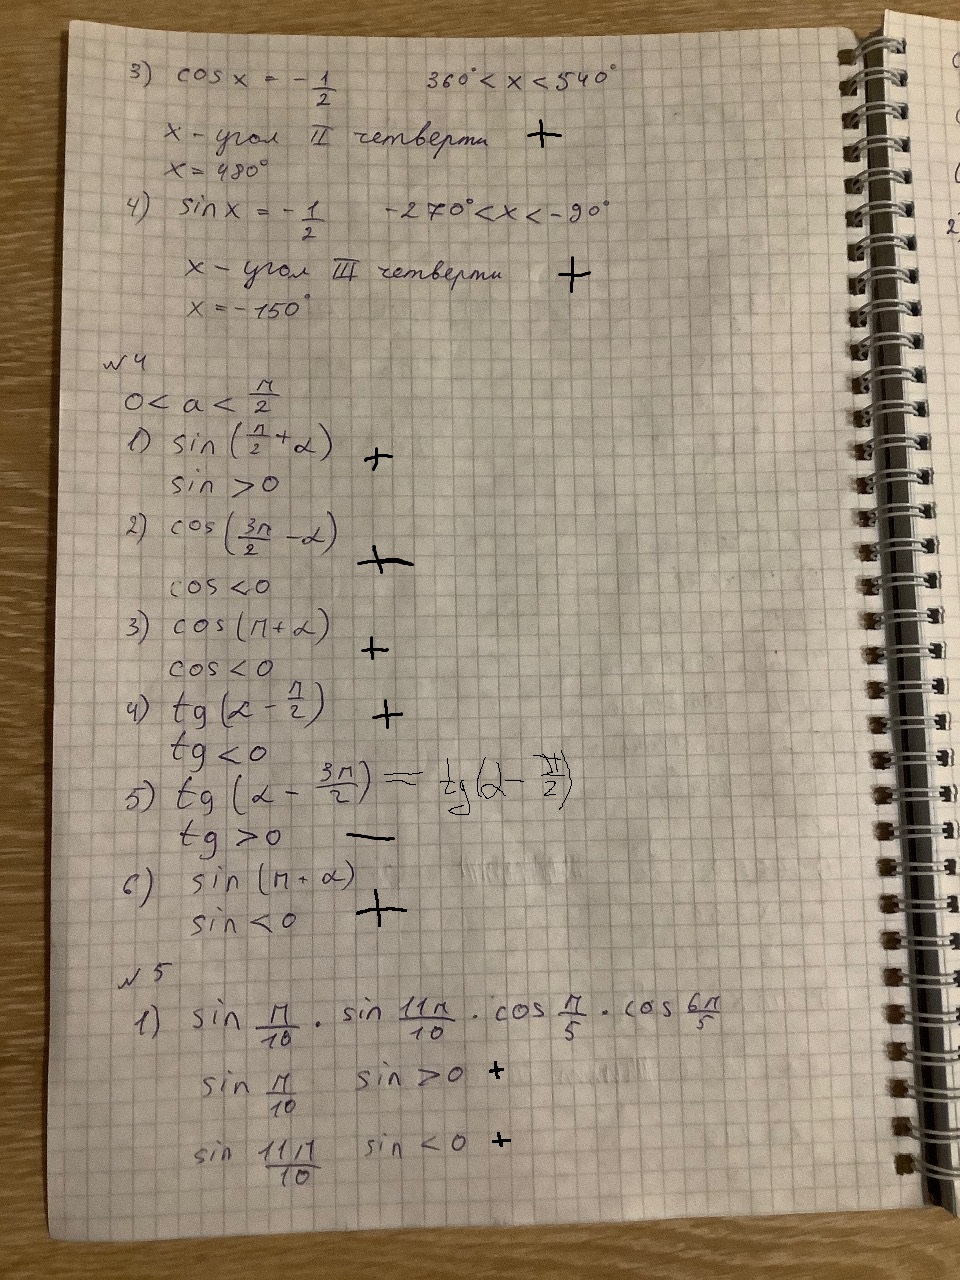 3) cos x = - 1/2 360° < x < 540°
x - угол II четверти +
x = 480°
4) sin x = - 1/2 -270° < x < -90°
x - угол III четверти +
x = -150°
№4
0 < a < π/2
1) sin (π/2 + α) +
sin > 0
2) cos (3π/2 - α) +
cos < 0
3) cos (π + α) +
cos < 0
4) tg (α - π/2) +
tg < 0
5) tg (α - 3π/2) = tg (α - π/2)
tg > 0 —
6) sin (π + α) +
sin < 0
№5
1) sin π/10 · sin 11π/10 · cos π/5 · cos 6π/5
sin π/10 sin > 0 +
sin 11π/10 sin < 0 +